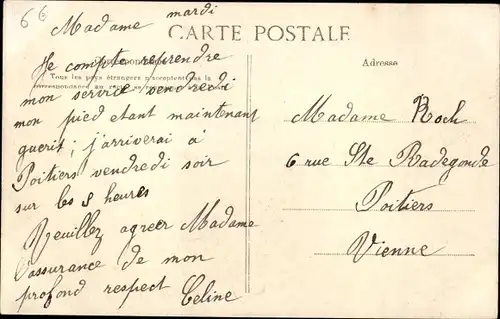 66
mardi
Madame
CARTE POSTALE
Je compte reprendre
Tous les pays étrangers n'acceptent pas la
mon service vendredi
mon pied etant maintenant
guerit; j'arriverai à
Poitiers vendredi soir
sur les 8 heures
Veuillez agreer Madame
l'assurance de mon
profond respect Celine
Adresse
Madame Roch
6 rue Ste Radegonde
Poitiers
Vienne